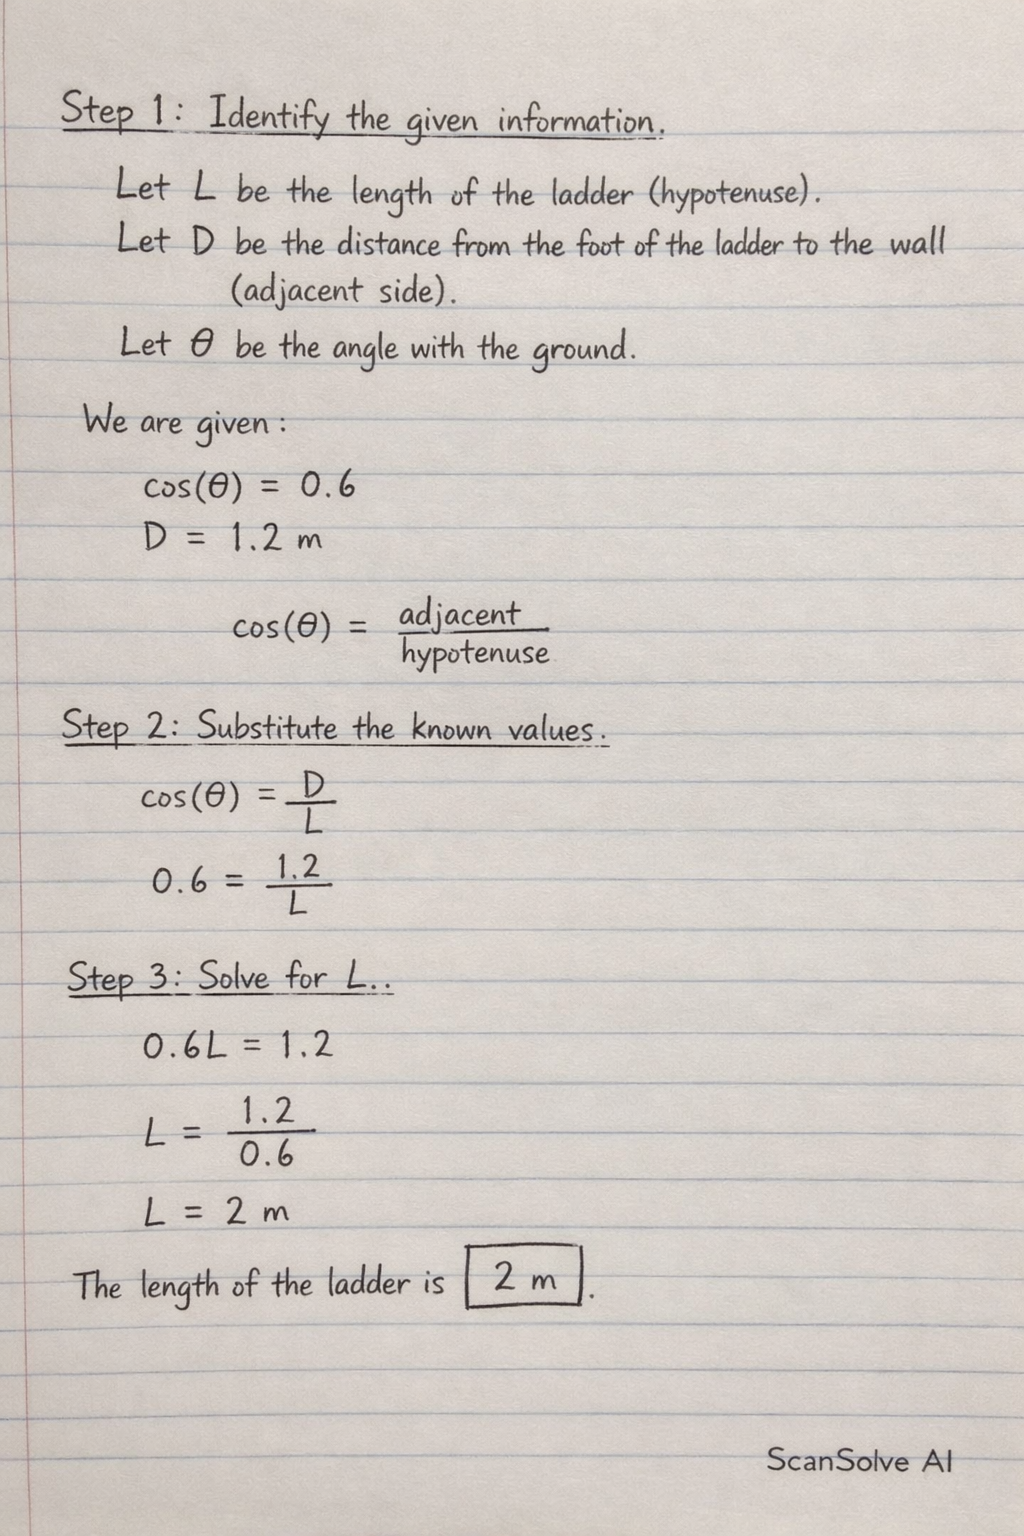 Step 1: Identify the given information.
Let L be the length of the ladder (hypotenuse).
Let D be the distance from the foot of the ladder to the wall
(adjacent side).
Let θ be the angle with the ground.
We are given:
cos(θ) = 0.6
D = 1.2 m
cos(θ) = adjacent
hypotenuse
Step 2: Substitute the known values.
cos(θ) = D
L
0.6 = 1.2
L
Step 3: Solve for L..
0.6L = 1.2
L = 1.2
0.6
L = 2 m
The length of the ladder is 2 m.
ScanSolve AI